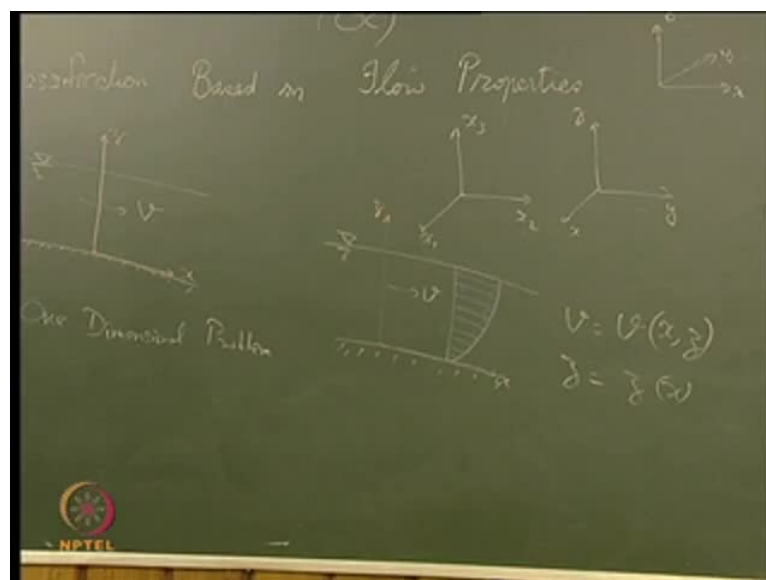 (x)
Classification Based on Flow Properties
x
x₃
z
x₂
y
x₁
x
v
x
z
v
x
One Dimensional Problem
v = v(x, z)
z = z(x)
NPTEL